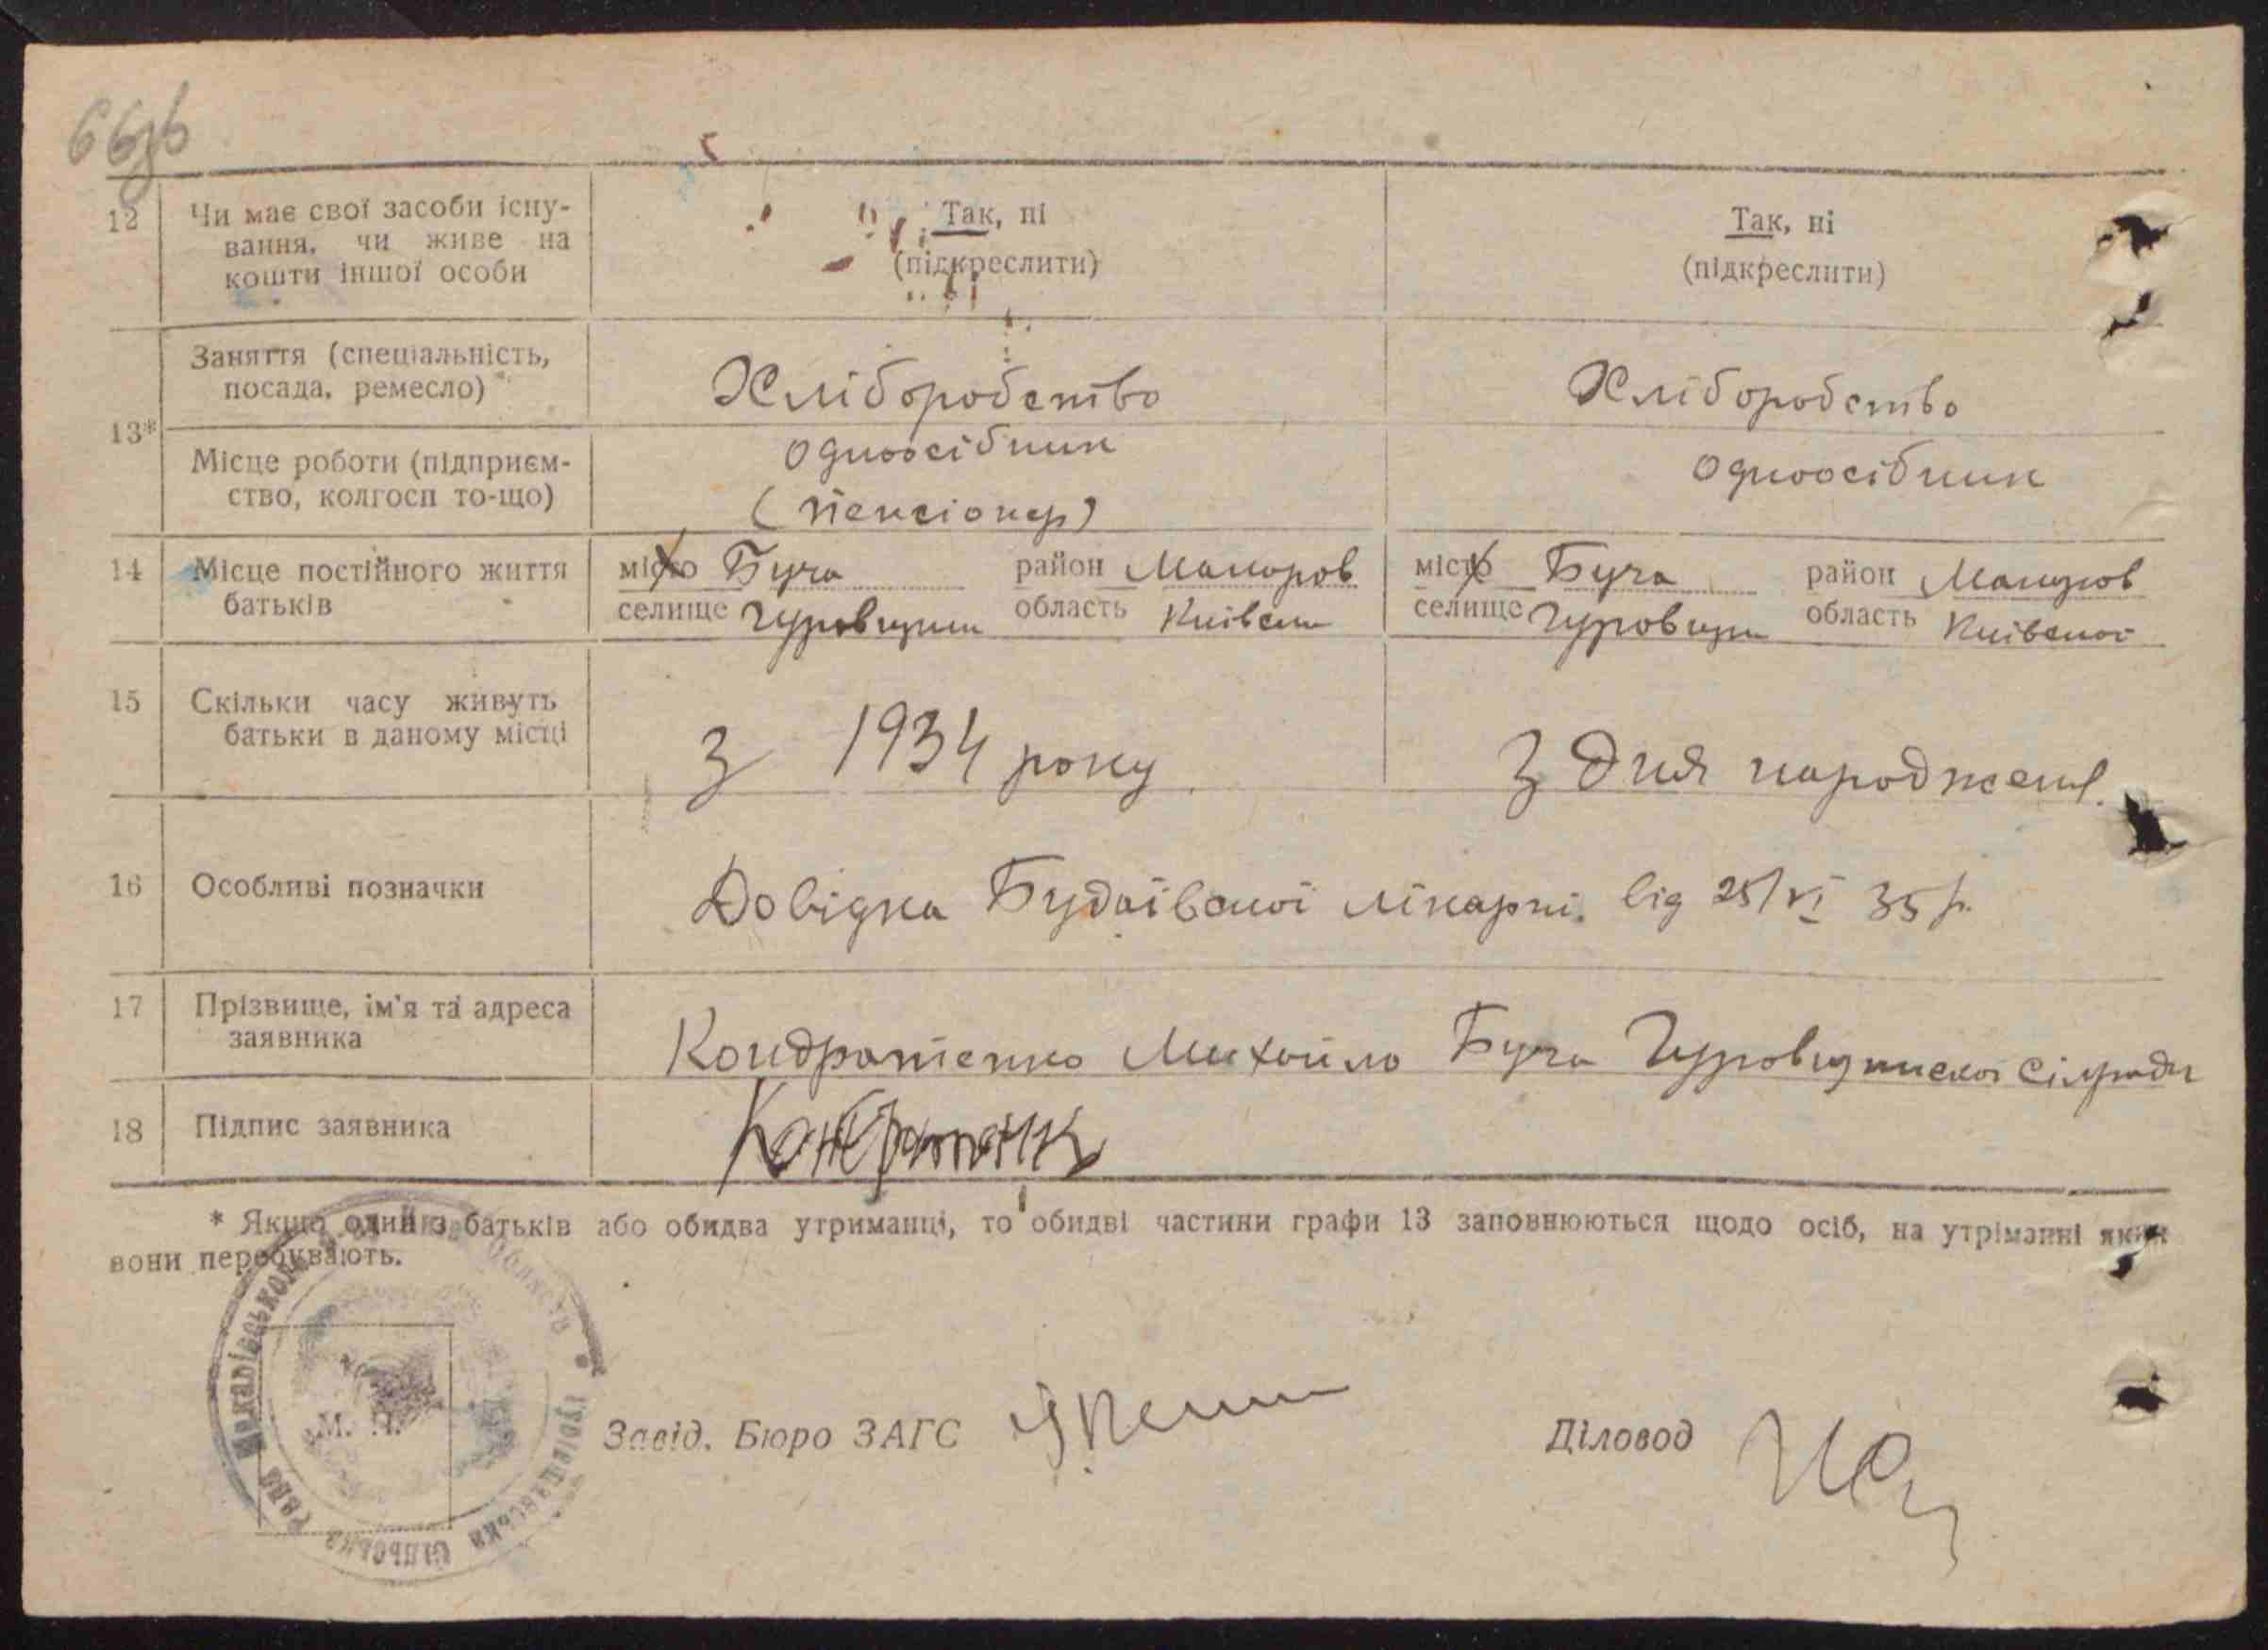 12 Чи має свої засоби існу-
вання, чи живе на
кошти іншої особи
Так, ні
(підкреслити)
Так, ні
(підкреслити)
13*
Заняття (спеціальність,
посада, ремесло)
Хліборобство
Хліборобство
Місце роботи (підприєм-
ство, колгосп то-що)
одноосібник
(пенсіонер)
одноосібник
14 Місце постійного життя
батьків
місто Буча район Макаров
селище Гуровщини область Київськ
місто Буча район Макаров
селище Гуровщин область Київської
15 Скільки часу живуть
батьки в даному місці
З 1934 року
З дня народжен.
16 Особливі позначки
Довідка Будаївської лікарні. від 25/VI 35 р.
17 Прізвище, ім'я та адреса
заявника
Кондратенко Михайло Буча Гуровщинської сілради
18 Підпис заявника
Кондратенк
* Якщо один з батьків або обидва утриманці, то обидві частини графи 13 заповнюються щодо осіб, на утріманні яких
вони перебувають.
М. П.
Завід. Бюро ЗАГС
Діловод
сільська рада